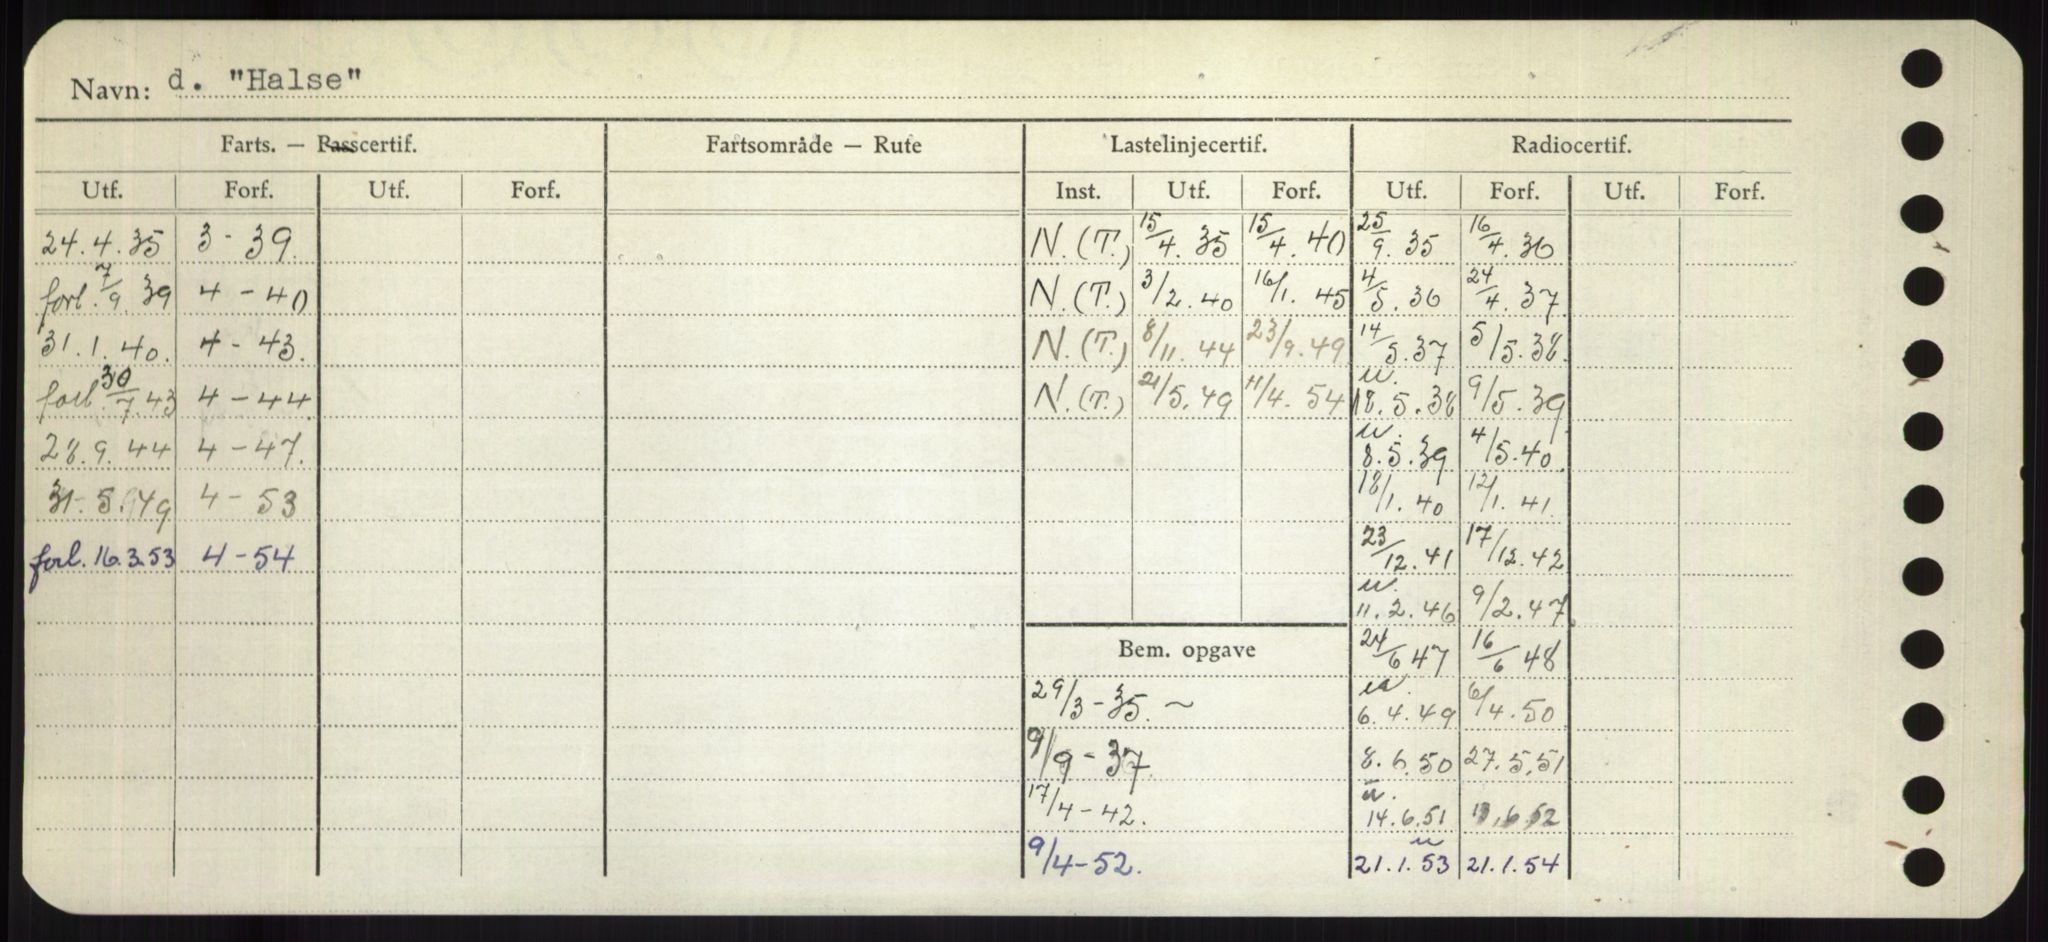 Navn: d. "Halse"
Farts. — Passcertif. Fartsområde — Rute Lastelinjecertif. Radiocertif.
Utf. Forf. Utf. Forf. Inst. Utf. Forf. Utf. Forf. Utf. Forf.
24.4.35 3-39. N.(T.) 15/4.35 15/4.40 25/9.35 16/4.36
forl. 7/9.39 4-40 N.(T.) 3/2.40 16/1.45 4/5.36 24/4.37
31.1.40. 4-43. N.(T.) 8/11.44 23/9.49 14/5.37 5/5.38.
forl. 30/7.43 4-44. N.(T.) 21/5.49 11/4.54 u. 18.5.38 9/5.39
28.9.44 4-47. u. 8.5.39 4/5.40.
31.5.49 4-53 18/1.40 12/1.41.
forl. 16.3.53 4-54 23/12.41 17/12.42
u. 11.2.46 9/2.47
Bem. opgave 24/6 47 16/6 48
29/3-35. ~ u. 6.4.49 6/4.50
9/9-37. 8.6.50 27.5.51
17/4-42. u. 14.6.51 .6.52
9/4-52. u 21.1.53 21.1.54